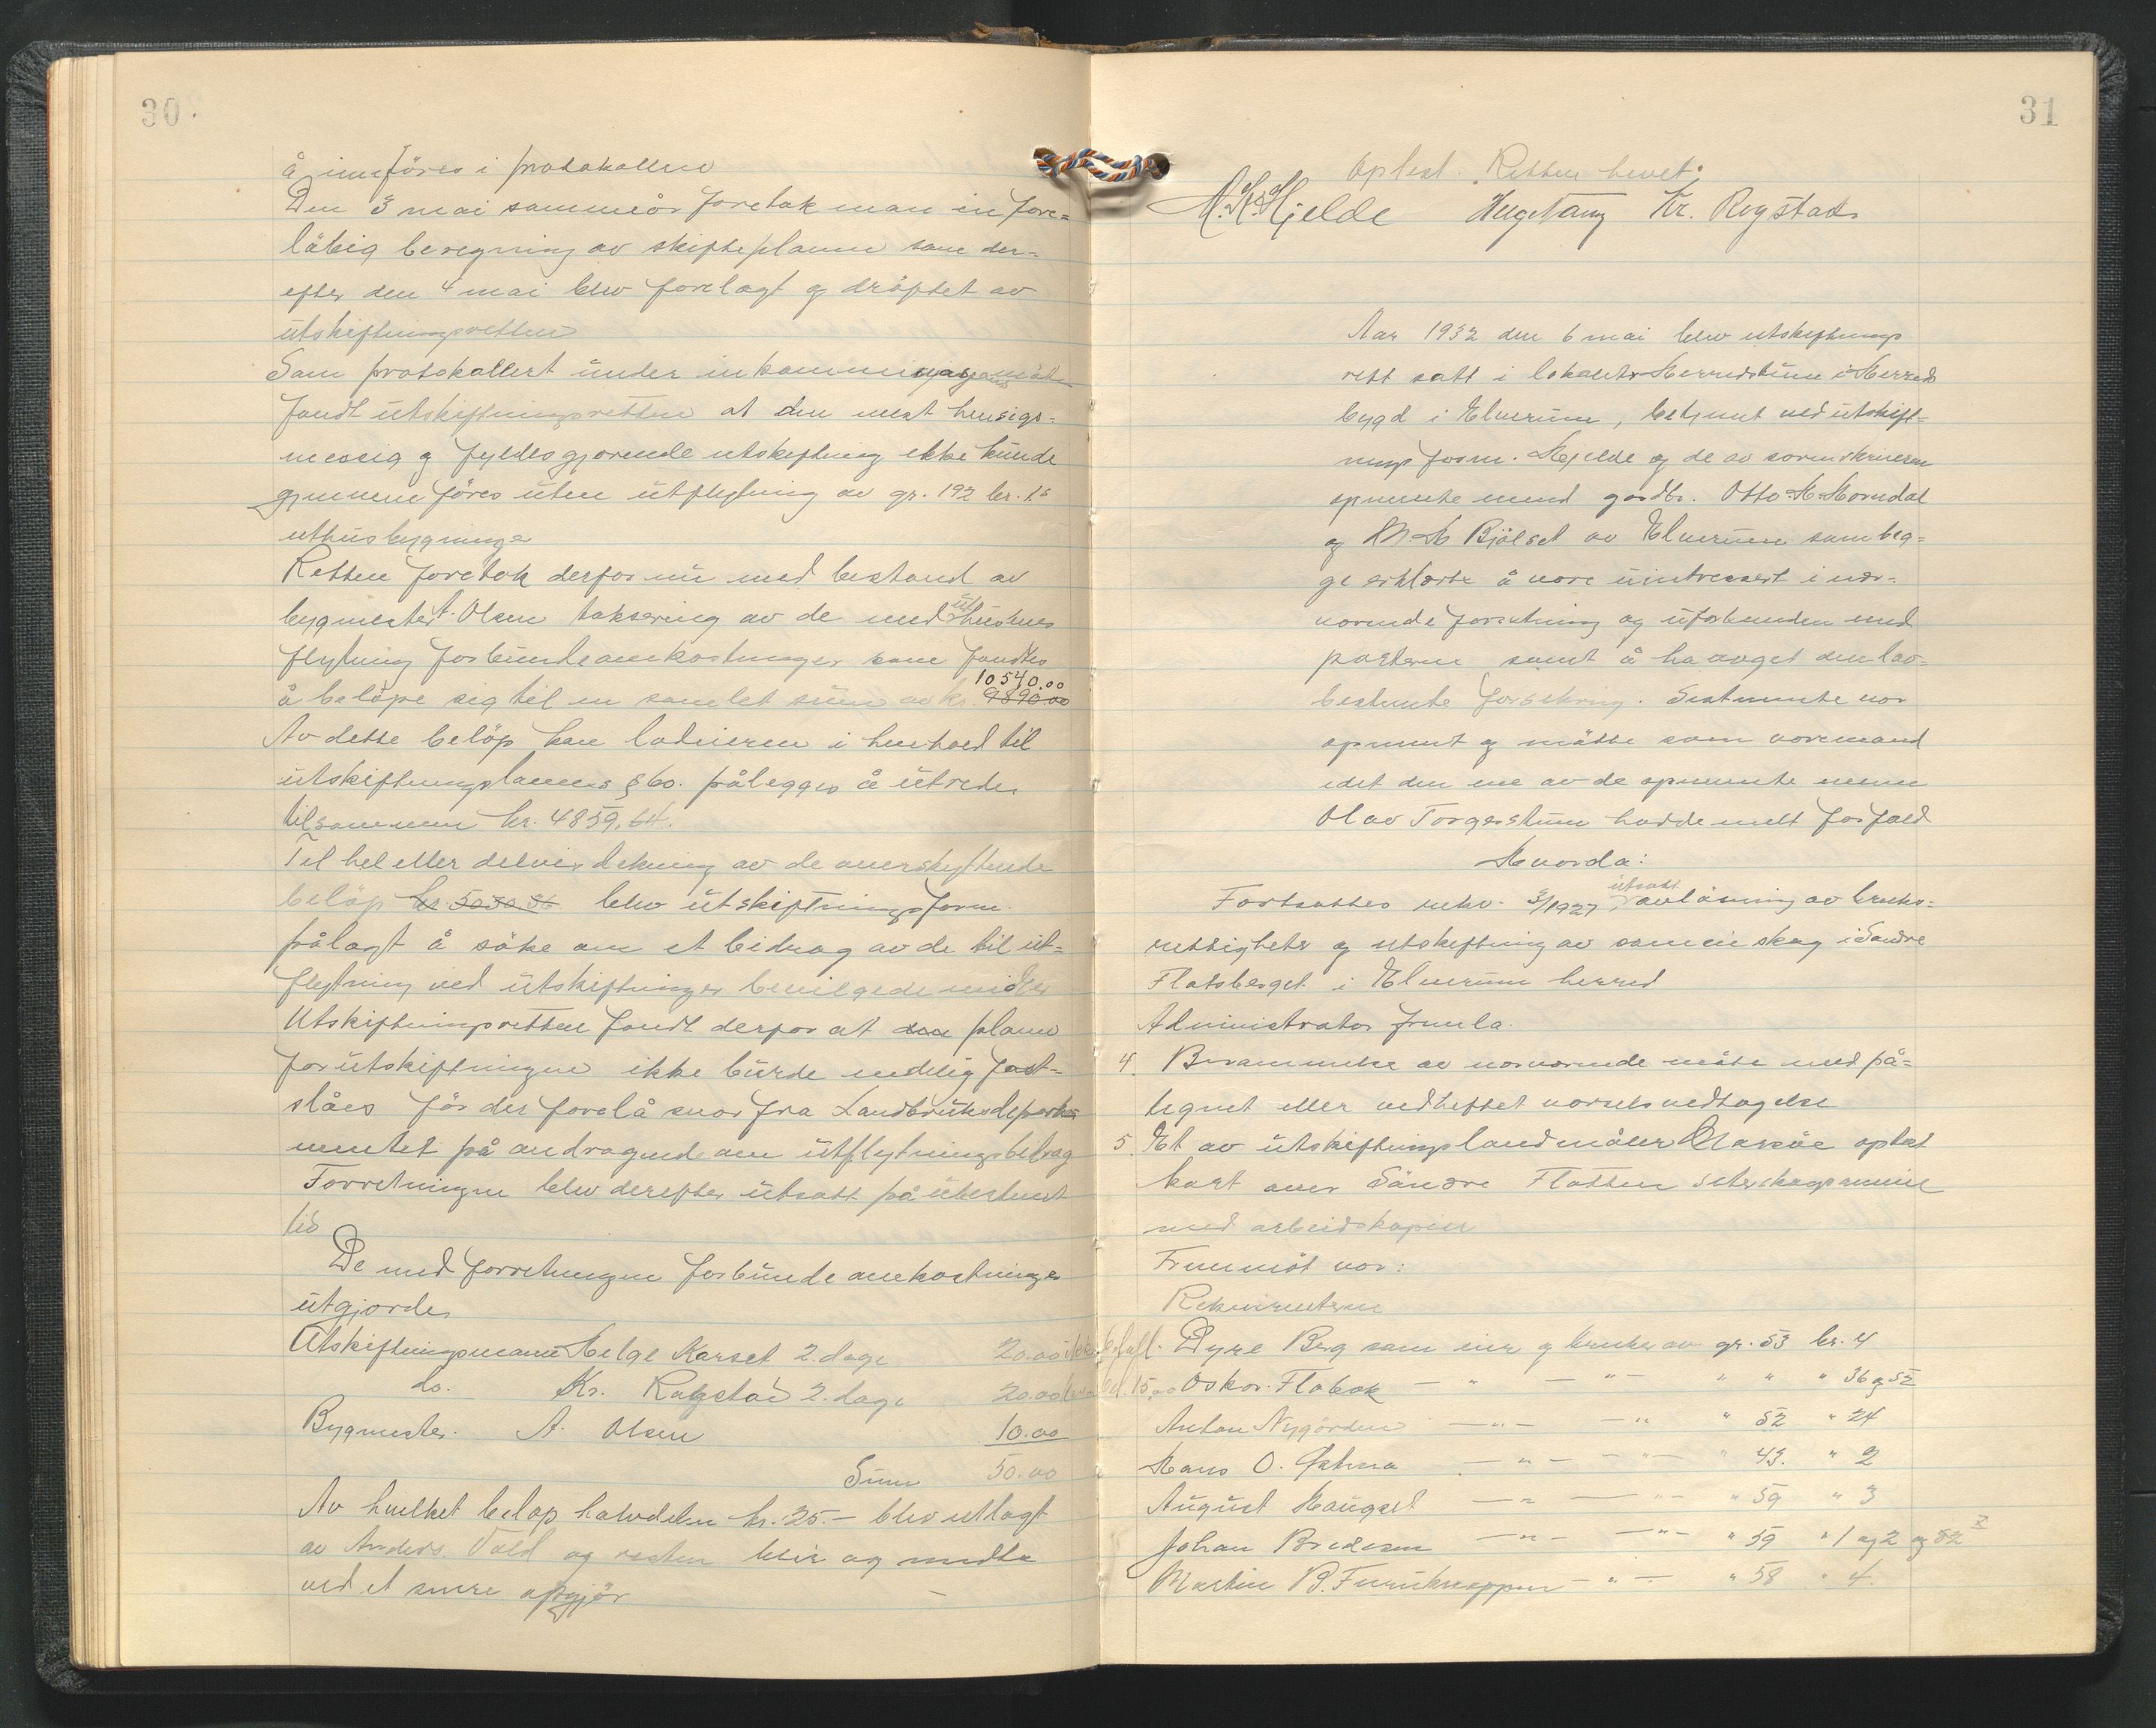 30
å inføres i protokollen
Den 3 mai sammeår foretok man en fore=
løbig beregning av skifteplanen som der=
efter den 4 mai blev forelagt og drøftet av
utskiftningsretten
Som protokollert under inkommings møte
fandt utskiftningsretten at den mest hensigs-
messig og fyldesgjørende utskiftning ikke kunde
gjennemføres uten utflytning av gr. 192 br. 1s
uthusbygninger
Retten foretok derfor nu med bestand av
bygmester A. Olsen taksering av de med uthusenes
flytning forbundeomkostninger som fandtes
10540.00
å beløpe sig til en samlet sum av kr. 9890.00
Av dette beløp kan lodeieren i henhold til
utskiftningslovens § 60. pålegges å utrede
tilsammen kr. 4859,64.
Til hel eller delvis dekning av de overskytende
beløp kr. 5030.36 blev utskiftningsform.
pålagt å søke om et bidrag av de til ut=
flytning ved utskiftninger bevilgede midler
Utskiftningsretten fandt derfor at den planen
for utskiftningen ikke burde endelig fast-
slåes før der forelå svar fra Landbruksdeparte
mentet på andragende om utflytningsbidrag
Forretningen blev derefter utsatt på ubestemt
tid
De med forretningen forbunde omkostninger
utgjorde
Utskiftningsmann Helge Karset 2. dage 20.00
do. Kr. Rogstad 2. dage 20.00
Bygmester. A. Olsen 10.00
Sum 50.00
Av hvilket beløp halvdelen kr. 25.- blev utlagt
av Anders Vold og resten blir og medta
ved et senere opgjør
31
Oplest. Retten hevet.
Kr. Rogstad
Aar 1932 den 6 mai blev utskiftnings
rett satt i lokalet Herredstun i Herreds
bygd i Elverum, betjent ved utskift-
nings form. Hjelde og de av sorenskriveren
opnevnte menn gårdbr. Otto H. Horndal
og M. H. Bjølset av Elverum som beg=
ge erklærte å være uintressert i nær-
værende forretning og uforbunden med
parterne samt å ha avget den lov-
bestemte forsikring. Sistnevnte var
opnevnt og møtte som varemand
idet den ene av de opnevnte menn
Olav Torgerstuen hadde meldt forfald
Hvorda:
Fortsattes rekv. 3/1927, utsatt avløsning av bruks=
rettigheter og utskiftning av sameie skog i Søndre
Flatsberget i Elverum herred
Administrator fremla
4. Berammelse av nærværende møte med på=
tegnet eller vedheftet varselsvedtagelse
5. Et av utskiftningslandmåler Aaraae optat
kart over Søndre Flatten seterskogsameie
med arbeidskopier
Fremmøt var:
Rekvirenterne
Dyre Berg som eier og bruker av gr. 53 br. 4
Oskar Flabak — " — — " — " " " 36 og 52
Anton Nygården — " — — " " 52 " 24
Hans O. — " — — " — " 43. " 2
August Haugset — " — " — " 59 " 3
Johan Bredesen — " — — " — " 59 " 1 og 2 og 52
Martin B. Furuknappen — " — " 58 " 4.